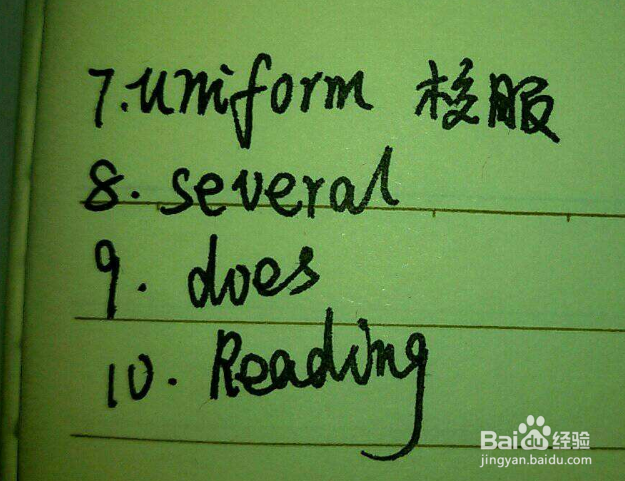 7. uniform 校服
8. several
9. does
10. Reading
Baidu经验
jingyan.baidu.com